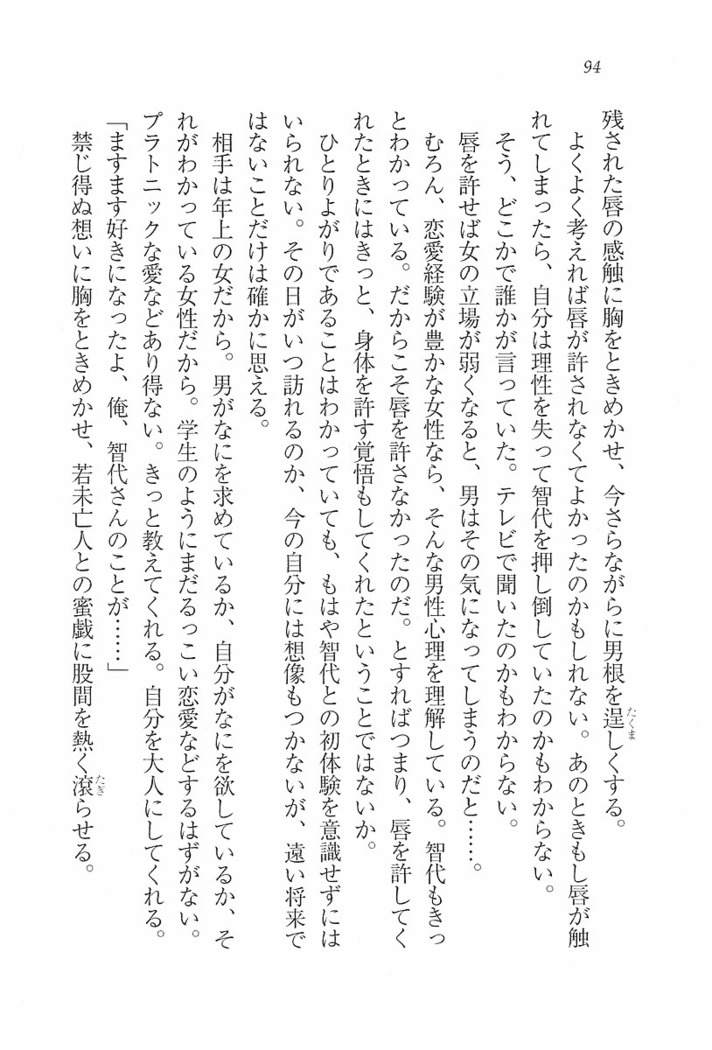 94
残された唇の感触に胸をときめかせ、今さらながらに男根を逞しくする。
よくよく考えれば唇が許されなくてよかったのかもしれない。あのときもし唇が触
れてしまったら、自分は理性を失って智代を押し倒していたのかもわからない。
そう、どこかで誰かが言っていた。テレビで聞いたのかもわからない。
唇を許せば女の立場が弱くなると、男はその気になってしまうのだと……。
むろん、恋愛経験が豊かな女性なら、そんな男性心理を理解している。智代もきっ
とわかっている。だからこそ唇を許さなかったのだ。とすればつまり、唇を許してく
れたときにはきっと、身体を許す覚悟もしてくれたということではないか。
ひとりよがりであることはわかっていても、もはや智代との初体験を意識せずには
いられない。その日がいつ訪れるのか、今の自分には想像もつかないが、遠い将来で
はないことだけは確かに思える。
相手は年上の女だから。男がなにを求めているか、自分がなにを欲しているか、そ
れがわかっている女性だから。学生のようにまだるっこい恋愛などするはずがない。
プラトニックな愛などあり得ない。きっと教えてくれる。自分を大人にしてくれる。
「ますます好きになったよ、俺、智代さんのことが……」
禁じ得ぬ想いに胸をときめかせ、若未亡人との蜜戯に股間を熱く滾らせる。
たくま
たぎ